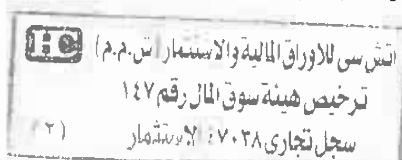 اتش سى للاوراق المالية والاستثمار (ش.م.م) HC
ترخيص هيئة سوق المال رقم ١٤٧
سجل تجارى ٧٠٣٨ : الاستثمار (٢)